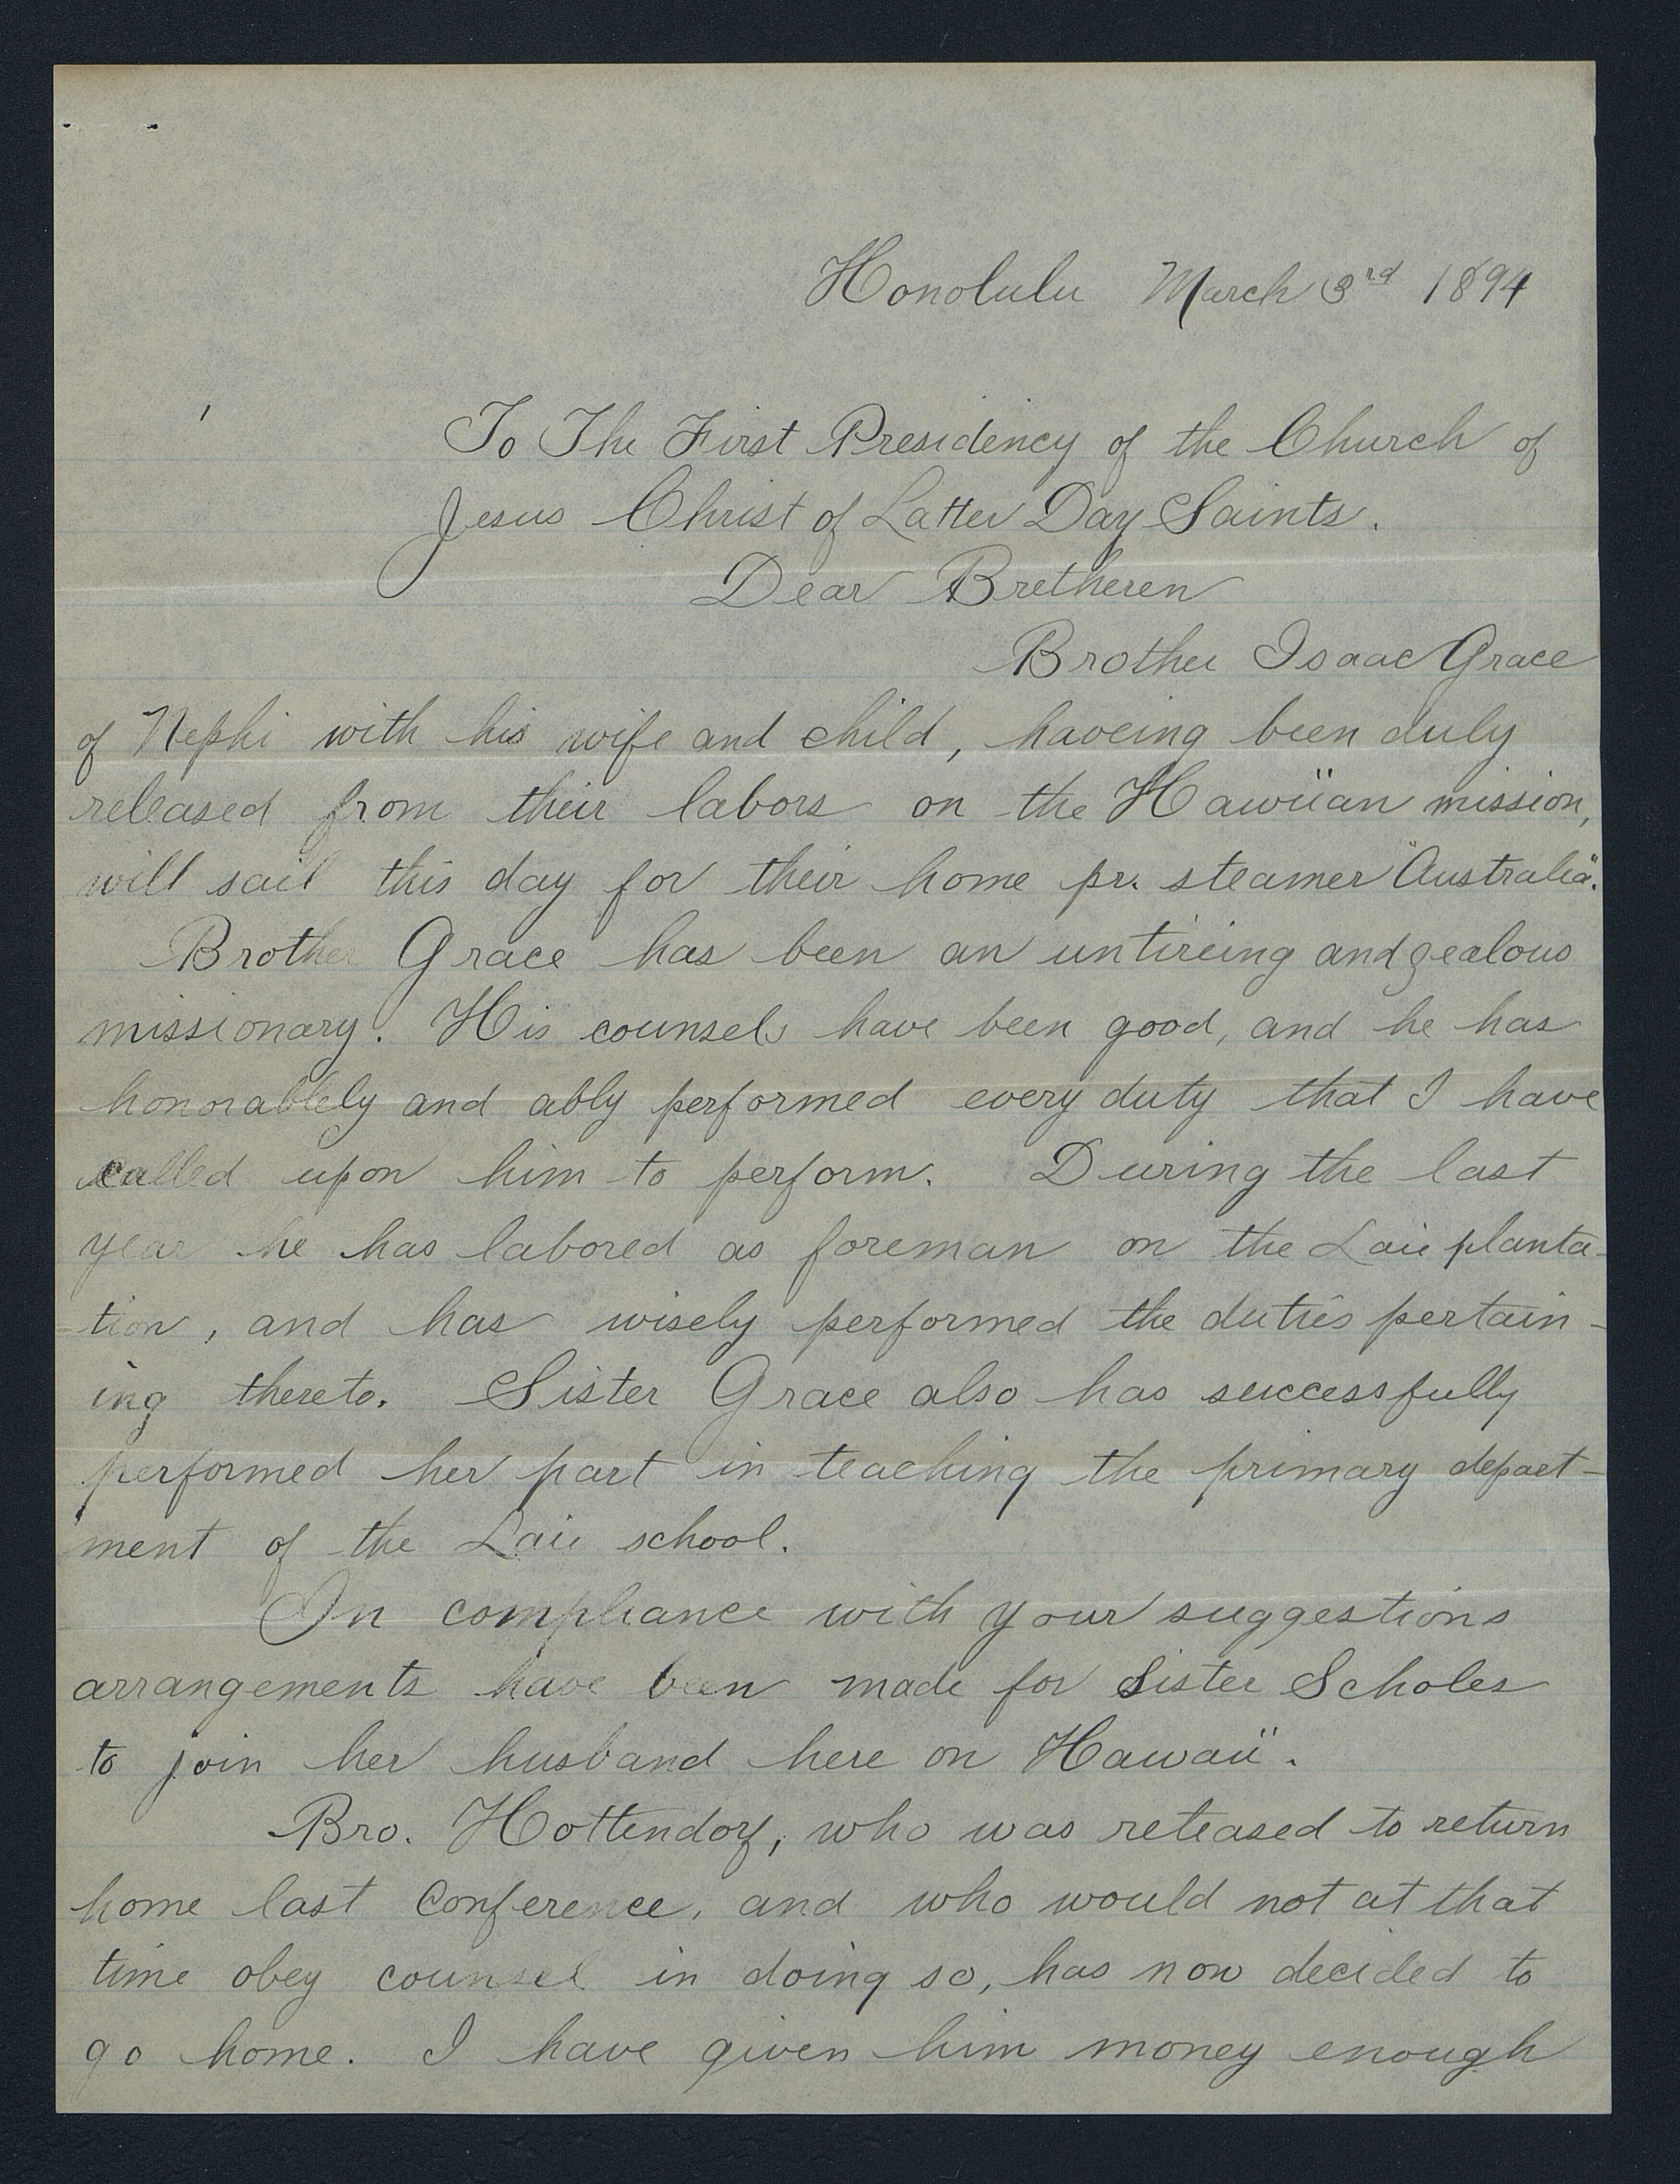 Honolulu March 3rd 1894
To The First Presidency of the Church of
Jesus Christ of Latter Day Saints.
Dear Bretheren
Brother Isaac Grace
of Nephi with his wife and child, haveing been duly
released from their labors on the Hawiian mission,
will sail this day for their home pr. steamer "Australia".
Brother Grace has been an untireing and zealous
missionary. His counsels have been good, and he has
honorablely and ably performed every duty that I have
called upon him to perform. During the last
year he has labored as foreman on the Laie planta-
tion, and has wisely performed the duties pertain-
ing thereto. Sister Grace also has successfully
performed her part in teaching the primary depart-
ment of the Laie school.
In compliance with your suggestions
arrangements have been made for Sister Scholes
to join her husband here on Hawaii.
Bro. Hottendorf, who was released to return
home last Conference, and who would not at that
time obey counsel in doing so, has now decided to
go home. I have given him money enough